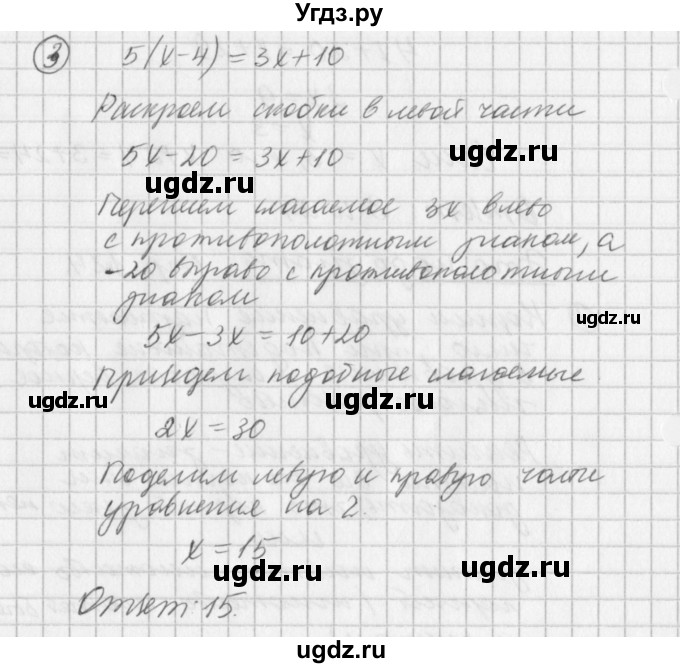 Угдз.ру
③ 5(x-4) = 3x+10
Раскроем скобки в левой части
5x-20 = 3x+10
ugdz.ru ugdz.ru
Перенесем слагаемое 3x влево
с противоположным знаком, а
-20 вправо с противоположным
ugdz.ru
знаком
ugdz.ru
5x-3x = 10+20
Приведем подобные слагаемые
ugdz.ru ugdz.ru
2x = 30
ugdz.ru
Поделим левую и правую части
уравнение на 2.
x = 15
ugdz.ru
Ответ: 15.
ugdz.ru ugdz.ru
ugdz.ru